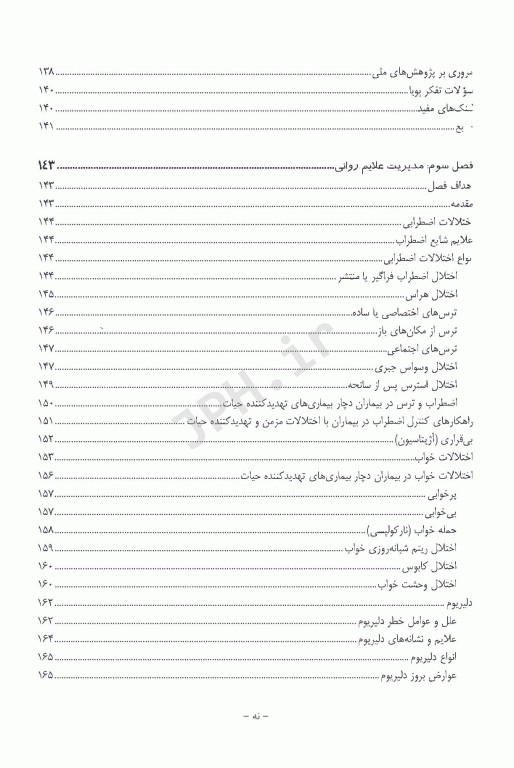 مروری بر پژوهش‌های ملی ۱۳۸
سؤالات تفکر پویا ۱۴۰
لینک‌های مفید ۱۴۰
۱۴۱
فصل سوم: مدیریت علایم روانی ۱۴۳
اهداف فصل ۱۴۳
مقدمه ۱۴۳
اختلالات اضطرابی ۱۴۴
علایم شایع اضطراب ۱۴۴
انواع اختلالات اضطرابی ۱۴۴
اختلال اضطراب فراگیر یا منتشر ۱۴۴
اختلال هراس ۱۴۵
ترس‌های اختصاصی یا ساده ۱۴۶
ترس از مکان‌های باز ۱۴۶
ترس‌های اجتماعی ۱۴۷
اختلال وسواس جبری ۱۴۷
اختلال استرس پس از سانحه ۱۴۹
اضطراب و ترس در بیماران دچار بیماری‌های تهدیدکننده حیات ۱۵۰
راهکارهای کنترل اضطراب در بیماران با اختلالات مزمن و تهدیدکننده حیات ۱۵۱
بی‌قراری (آژیتاسیون) ۱۵۲
اختلالات خواب ۱۵۳
اختلالات خواب در بیماران دچار بیماری‌های تهدیدکننده حیات ۱۵۶
پرخوابی ۱۵۷
بی‌خوابی ۱۵۷
حمله خواب (نارکولپسی) ۱۵۸
اختلال ریتم شبانه‌روزی خواب ۱۵۹
اختلال کابوس ۱۶۰
اختلال وحشت خواب ۱۶۰
دلیریوم ۱۶۲
علل و عوامل خطر دلیریوم ۱۶۲
علایم و نشانه‌های دلیریوم ۱۶۴
انواع دلیریوم ۱۶۵
عوارض بروز دلیریوم ۱۶۵
– نه –
JPH.ir